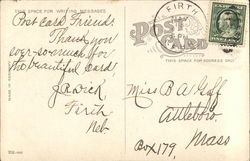 THIS SPACE FOR WRITING MESSAGES
Post card Friend:
Thank you
ever-so-much for
the beautiful card!
Firth
Neb
FIRTH
POST
CARD
THIS SPACE FOR ADDRESS ONLY
Miss B A Goff
Attleboro,
Box 179, Mass